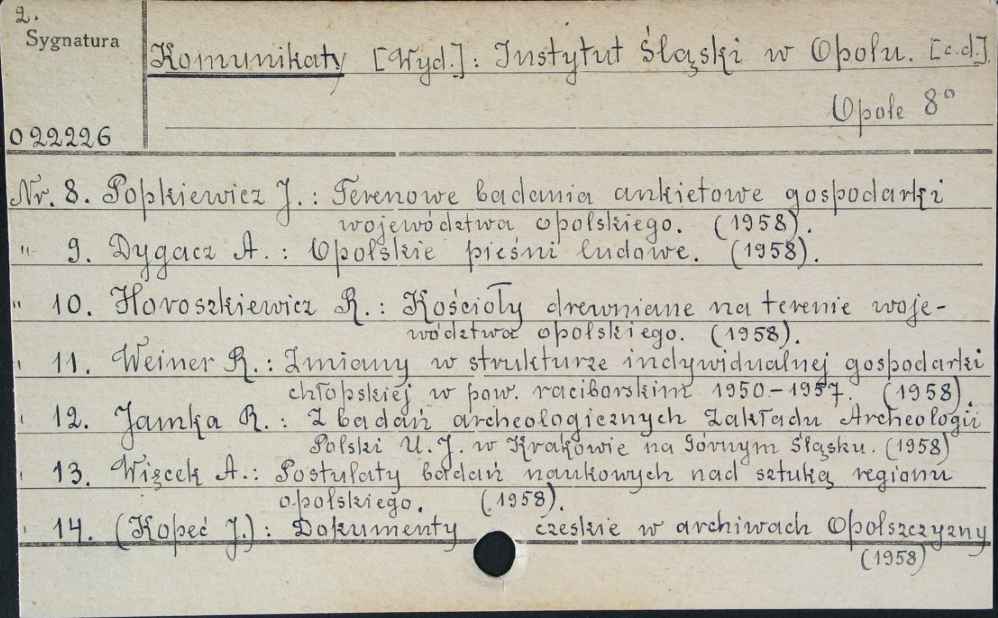 2.
Sygnatura
Komunikaty [Wyd.]: Instytut Śląski w Opolu. [c.d.]
Opole 8°
022226
Nr. 8. Popkiewicz J.: Terenowe badania ankietowe gospodarki
województwa opolskiego. (1958).
" 9. Dygacz A.: Opolskie pieśni ludowe. (1958).
" 10. Horoszkiewicz R.: Kościoły drewniane na terenie woje-
wództwa opolskiego. (1958).
" 11. Weiner R.: Zmiany w strukturze indywidualnej gospodarki
chłopskiej w pow. raciborskim 1950-1957. (1958).
" 12. Jamka R.: Z badań archeologicznych Zakładu Archeologii
Polski U.J. w Krakowie na Górnym Śląsku. (1958)
" 13. Więcek A.: Postulaty badań naukowych nad sztuką regionu
opolskiego. (1958).
" 14. (Kopeć J.): Dokumenty czeskie w archiwach Opolszczyzny
(1958)